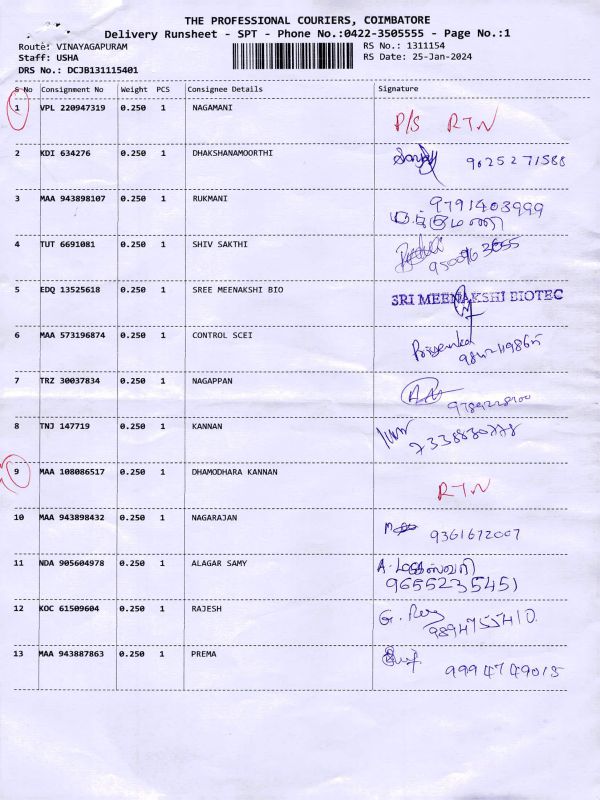 THE PROFESSIONAL COURIERS, COIMBATORE
Delivery Runsheet - SPT - Phone No.:0422-3505555 - Page No.:1
Route: VINAYAGAPURAM RS No.: 1311154
Staff: USHA RS Date: 25-Jan-2024
DRS No.: DCJB131115401
S No Consignment No Weight PCS Consignee Details Signature
1 VPL 220947319 0.250 1 NAGAMANI P/S RTN
2 KDI 634276 0.250 1 DHAKSHANAMOORTHI 9025271588
3 MAA 943898107 0.250 1 RUKMANI 9791403999
ருக்குமணி
4 TUT 6691081 0.250 1 SHIV SAKTHI
5 EDQ 13525618 0.250 1 SREE MEENAKSHI BIO SRI MEENAKSHI BIOTEC
6 MAA 573196874 0.250 1 CONTROL SCEI
7 TRZ 30037834 0.250 1 NAGAPPAN
8 TNJ 147719 0.250 1 KANNAN
9 MAA 108086517 0.250 1 DHAMODHARA KANNAN RTN
10 MAA 943898432 0.250 1 NAGARAJAN 9361672007
11 NDA 905604978 0.250 1 ALAGAR SAMY A.
9655235451
12 KOC 61509604 0.250 1 RAJESH G.
9894755410.
13 MAA 943887863 0.250 1 PREMA 9994749015